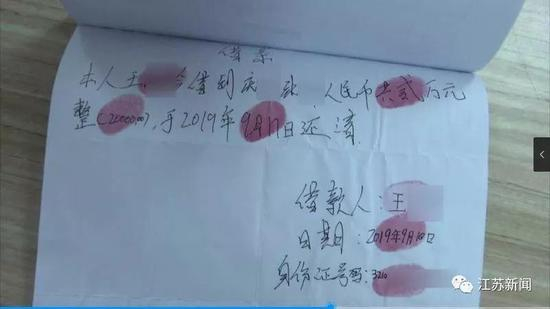 借条
本人王 今借到 张 人民币 贰万元
整(20000.00),于2019年9月17日还清
借款人:王
日期:2019年9月10日
身份证号码:3210
江苏新闻